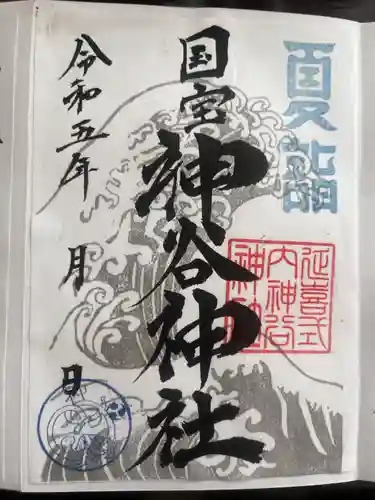 夏詣
国宝
神谷神社
延喜式
内神谷
神社
令和五年 月 日